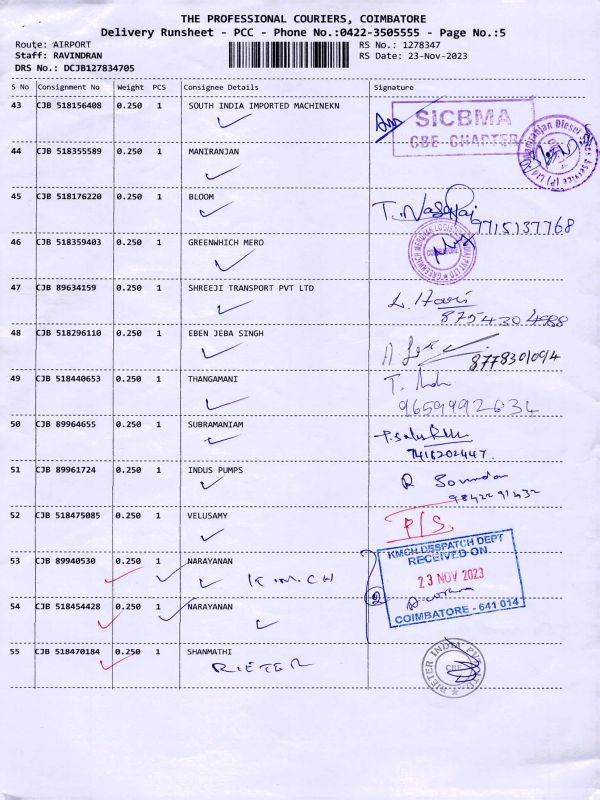 THE PROFESSIONAL COURIERS, COIMBATORE
Delivery Runsheet - PCC - Phone No.:0422-3505555 - Page No.:5
Route: AIRPORT RS No.: 1278347
Staff: RAVINDRAN RS Date: 23-Nov-2023
DRS No.: DCJB127834705
S No Consignment No Weight PCS Consignee Details Signature
43 CJB 518156408 0.250 1 SOUTH INDIA IMPORTED MACHINEKN
SICBMA
CBE CHAPTER
44 CJB 518355589 0.250 1 MANIRANJAN
45 CJB 518176220 0.250 1 BLOOM
9715137768
46 CJB 518359403 0.250 1 GREENWHICH MERO
47 CJB 89634159 0.250 1 SHREEJI TRANSPORT PVT LTD
Hari
8754304988
48 CJB 518296110 0.250 1 EBEN JEBA SINGH
8778301094
49 CJB 518440653 0.250 1 THANGAMANI
9659992634
50 CJB 89964655 0.250 1 SUBRAMANIAM
7418202447
51 CJB 89961724 0.250 1 INDUS PUMPS
9842291432
52 CJB 518475085 0.250 1 VELUSAMY
P/S
53 CJB 89940530 0.250 1 NARAYANAN
KMCH
KMCH DESPATCH DEPT
RECEIVED ON
23 NOV 2023
COIMBATORE - 641 014
54 CJB 518454428 0.250 1 NARAYANAN
55 CJB 518470184 0.250 1 SHANMATHI
RIETER
RIETER INDIA PVT LTD
CBE